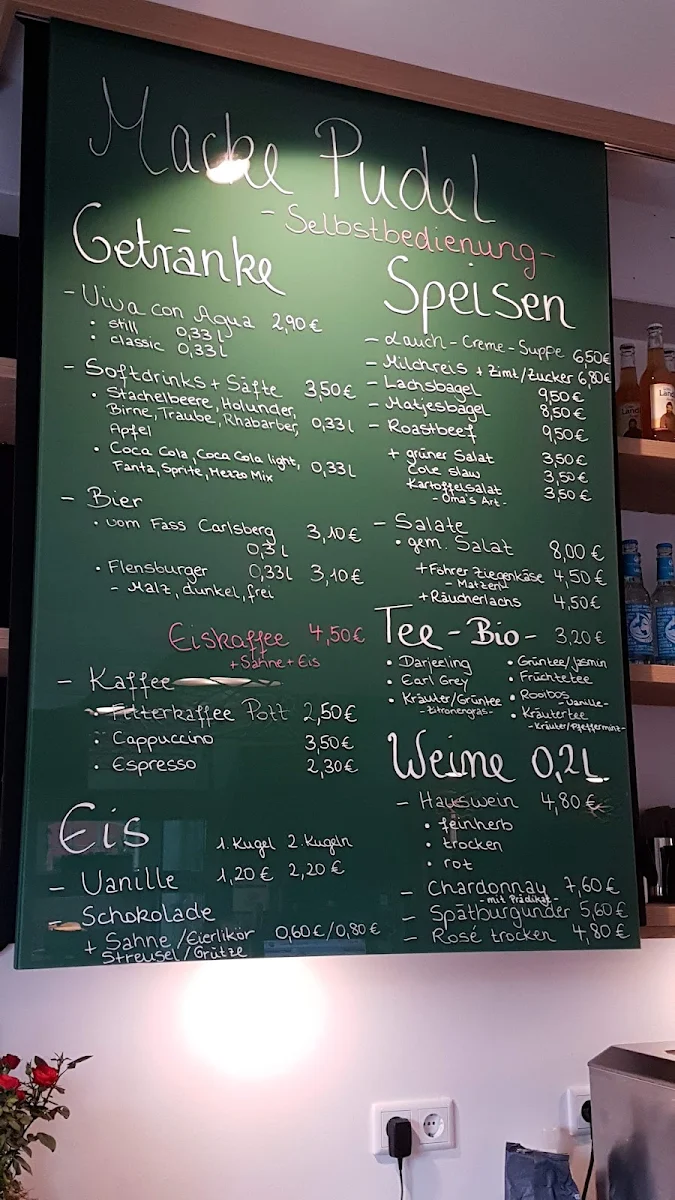 Macke Pudel
- Selbstbedienung -
Getränke
- Viva con Agua 2,90 €
• still 0,33 l
• classic 0,33 l
- Softdrinks + Säfte 3,50 €
• Stachelbeere, Holunder,
Birne, Traube, Rhabarber, 0,33 l
Apfel
• Coca Cola, Coca Cola light, 0,33 l
Fanta, Sprite, Mezzo Mix
- Bier
• vom Fass Carlsberg 3,10 €
0,3 l
• Flensburger 0,33l 3,10 €
- Malz, dunkel, frei
Eiskaffee 4,50 €
+ Sahne + Eis
- Kaffee
Filterkaffee Pott 2,50 €
• Cappuccino 3,50 €
• Espresso 2,30 €
Eis
1. Kugel 2. Kugeln
- Vanille 1,20 € 2,20 €
- Schokolade
+ Sahne / Eierlikör 0,60 € / 0,80 €
Streusel / Grütze
Speisen
- Lauch - Creme - Suppe 6,50 €
- Milchreis + Zimt/Zucker 6,80 €
- Lachsbagel 9,50 €
- Matjesbagel 8,50 €
- Roastbeef 9,50 €
+ grüner Salat 3,50 €
Cole slaw 3,50 €
Kartoffelsalat 3,50 €
- Oma's Art -
- Salate
• gem. Salat 8,00 €
+ Föhrer Ziegenkäse 4,50 €
- Matzen -
+ Räucherlachs 4,50 €
Tee - Bio - 3,20 €
• Darjeeling
• Earl Grey
• Kräuter/Grüntee
- Zitronengras -
• Grüntee/Jasmin
• Früchtetee
• Rooibos - Vanille -
• Kräutertee
- Kräuter/Pfefferminz -
Weine 0,2 L
- Hauswein 4,80 €
• feinherb
• trocken
• rot
- Chardonnay 7,60 €
- mit Prädikat -
- Spätburgunder 5,60 €
- Rosé trocken 4,80 €